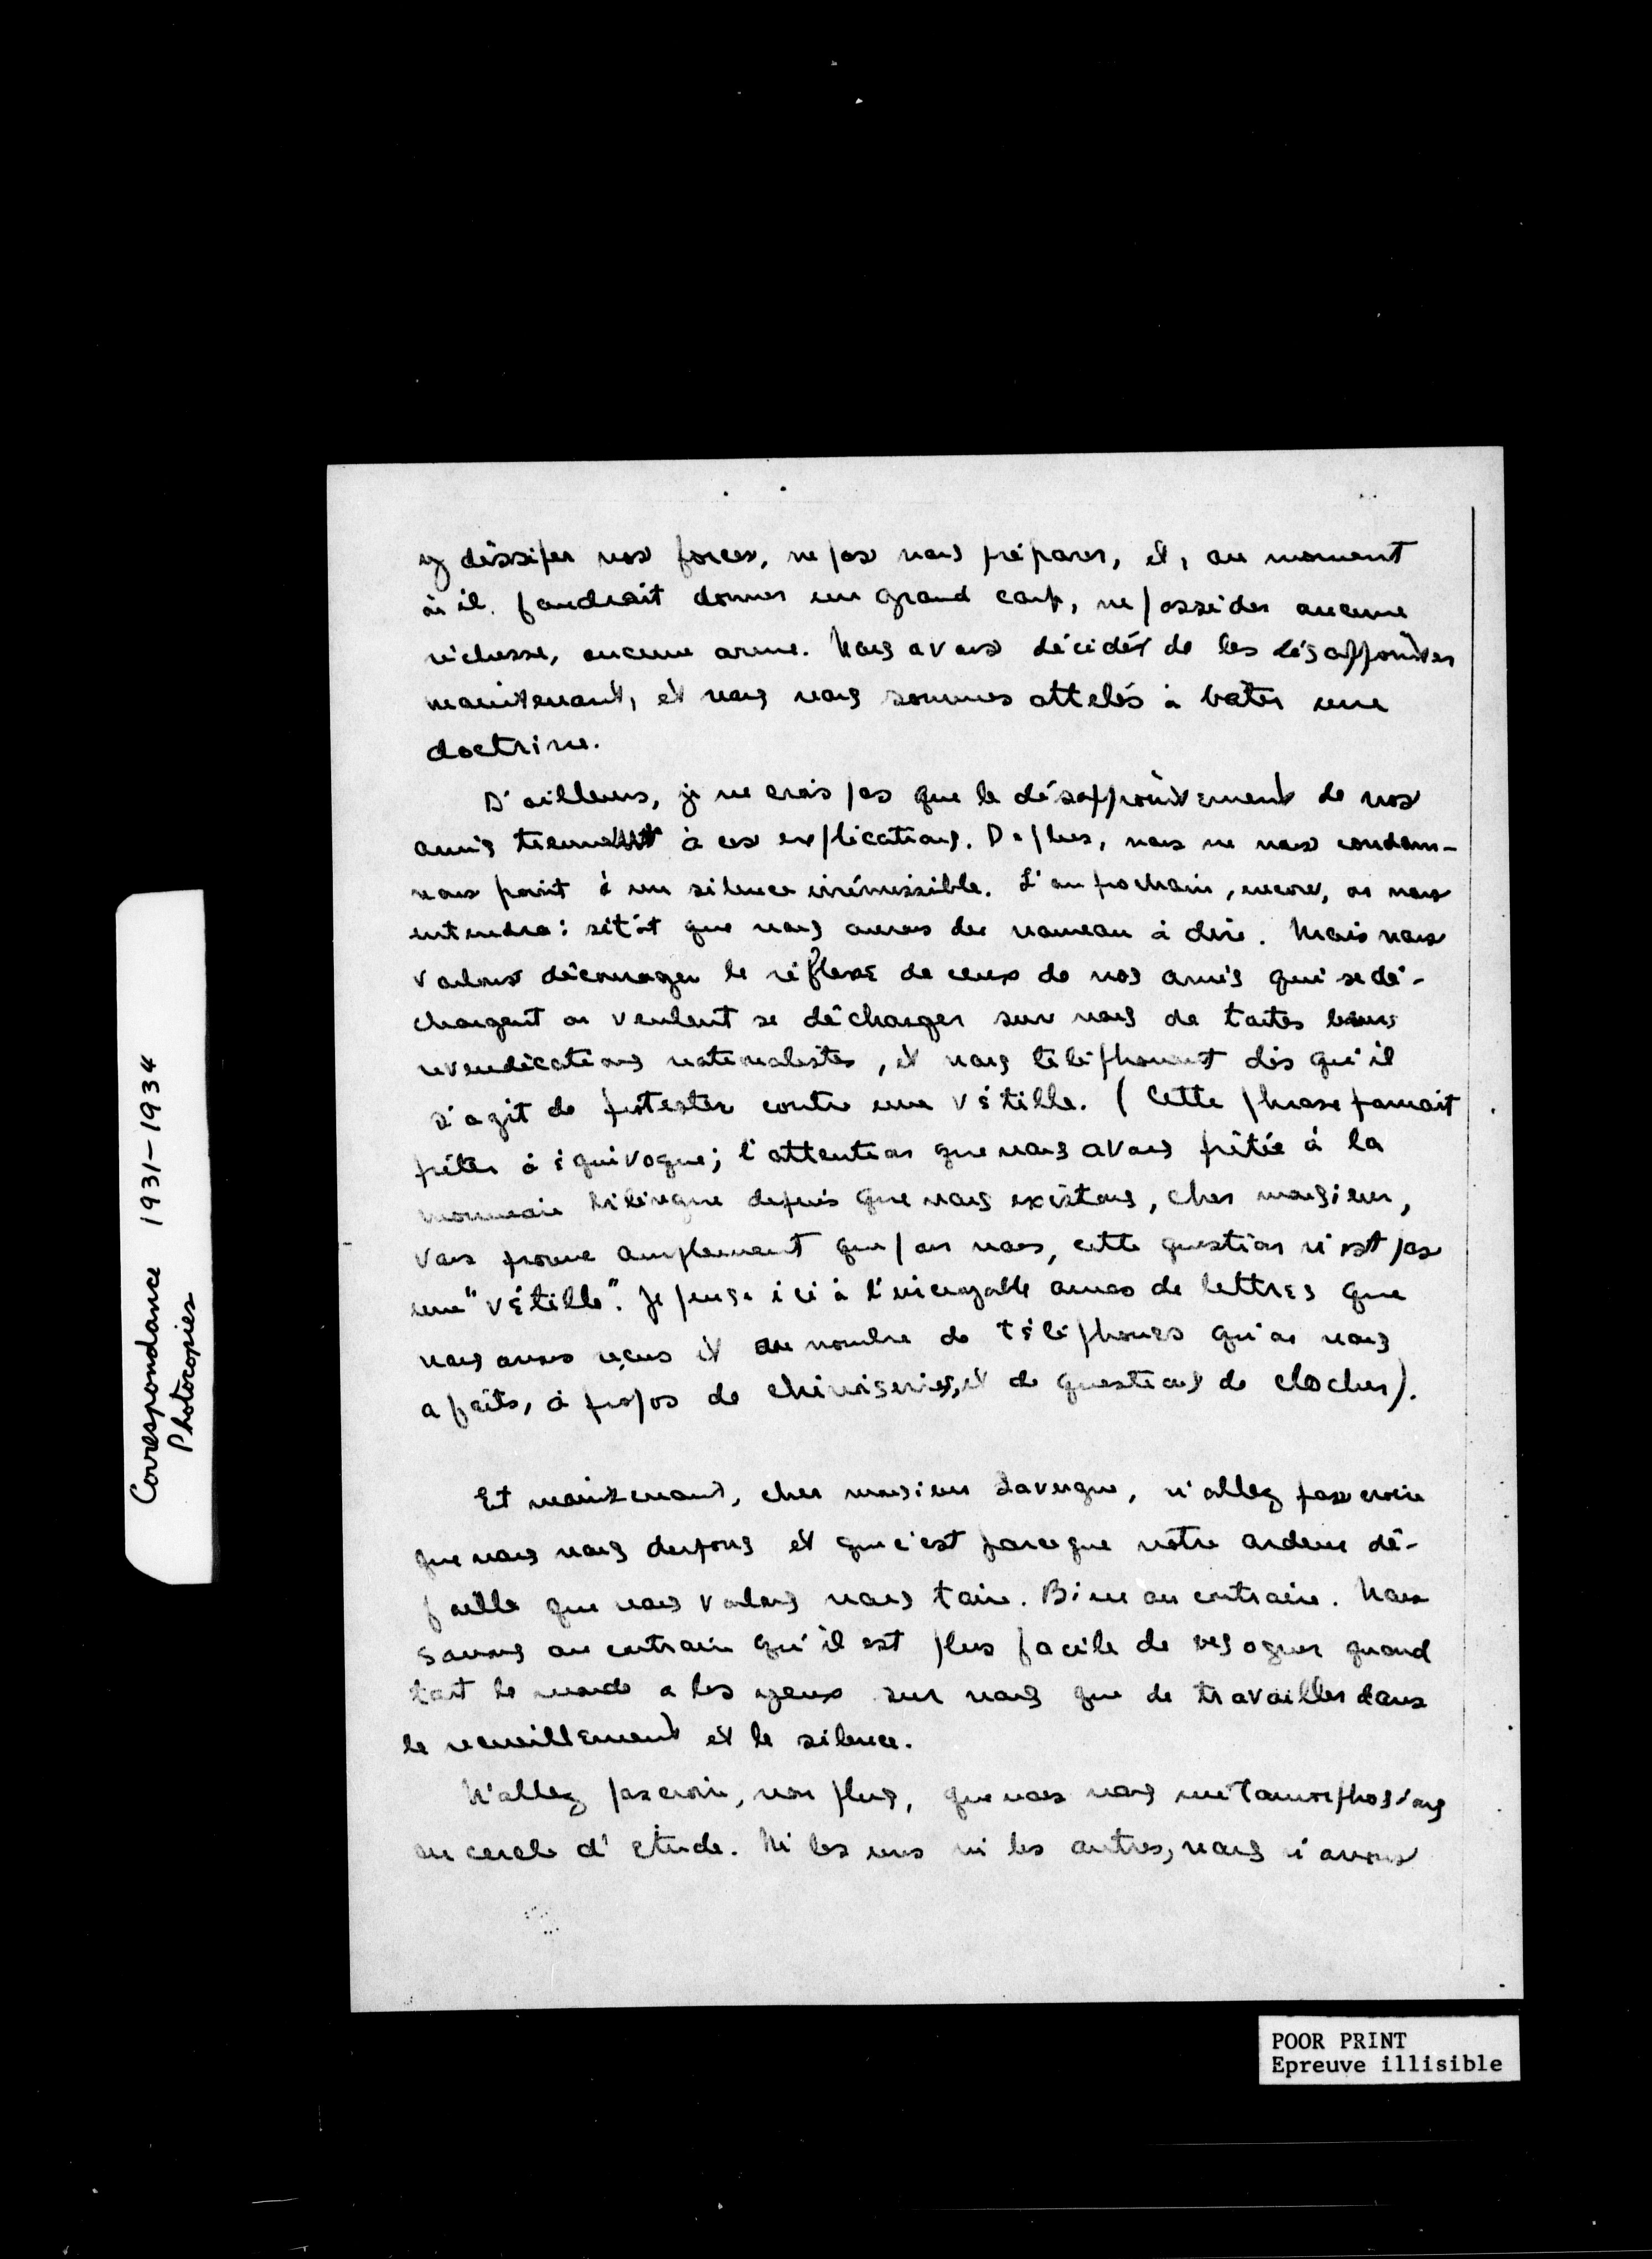 y dissiper nos forces, ne pas nous préparer, et, au moment
où il faudrait donner un grand coup, ne posséder aucune
richesse, aucune arme. Nous avons décidés de les désappointer
maintenant, et nous nous sommes attelés à bâtir une
doctrine.
D'ailleurs, je ne crois pas que le désappointement de nos
amis tienne à ces explications. De plus, nous ne nous condam-
nons point à un silence irrémissible. L'an prochain, encore, on nous
entendra: sitôt que nous aurons du nouveau à dire. Mais nous
voulons décourager le réflexe de ceux de nos amis qui se dé-
chargent ou veulent se décharger sur nous de toutes leurs
revendications nationalistes, et nous téléphonent dès qu'il
s'agit de protester contre une vétille. (Cette phrase pourrait
prêter à équivoque; l'attention que nous avons prêtée à la
monnaie bilingue depuis que nous existons, cher monsieur,
vous prouve amplement que pour nous, cette question n'est pas
une "vétille". Je pense ici à l'incroyable amas de lettres que
nous avons reçus et au nombre de téléphones qu'on nous
a faits, à propos de chinoiseries, et de questions de clocher).
Et maintenant, cher monsieur Lavergne, n'allez pas croire
que nous nous dupons et que c'est parceque notre ardeur dé-
faille que nous voulons nous taire. Bien au contraire. Nous
savons au contraire qu'il est plus facile de besogner quand
tout le monde a les yeux sur nous que de travailler dans
le recueillement et le silence.
N'allez pas croire, non plus, que nous nous métamorphosions
en cercle d'étude. Ni les uns ni les autres, nous n'avons
Correspondance 1931-1934
Photocopies
POOR PRINT
Epreuve illisible